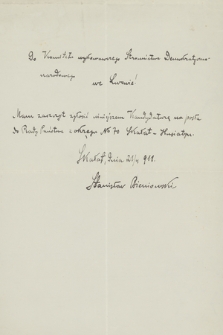 Do Komitetu wykonawczego Stronnictwa Demokratyczno-
narodowego
we Lwowie
Mam zaszczyt zgłosić niniejszem kandydaturę na posła
do Rady Państwa z okręgu No 70 Skałat - Husiatyn
Skałat, dnia 1911.
Stanisław